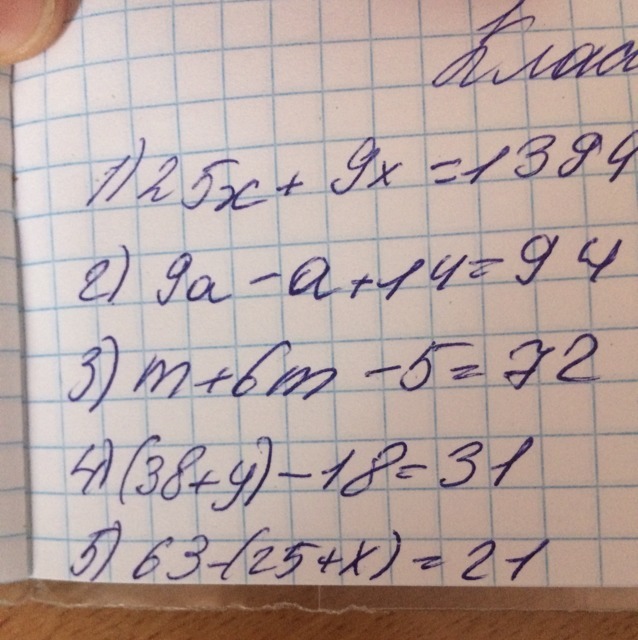 1) 25x + 9x = 1394
2) 9a - a + 14 = 94
3) m + 6m - 5 = 72
4) (38 + y) - 18 = 31
5) 63 - (25 + x) = 21